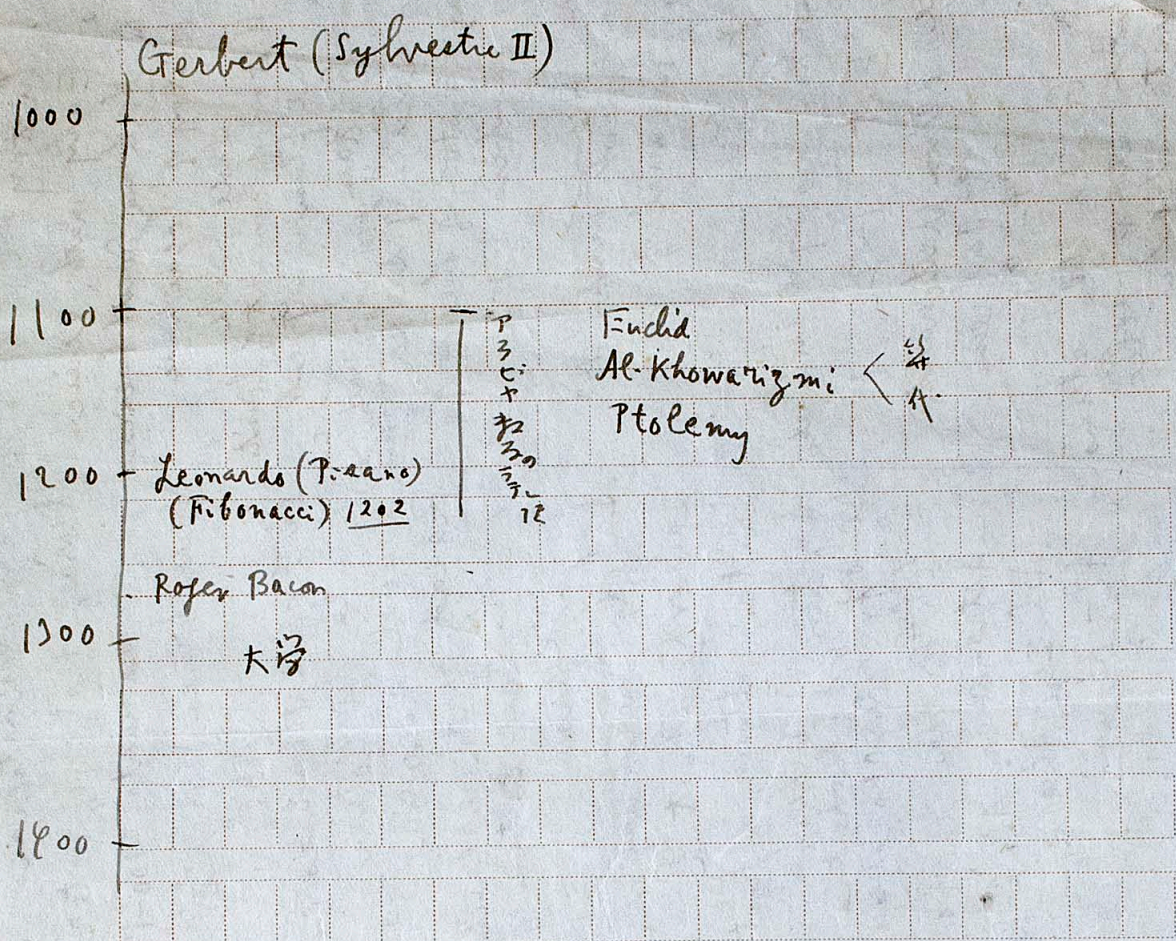 Gerbert (Sylvestre II)
1000
1100
アラビヤ
のラテン
Euclid
Al-Khowarizmi
算
代
Ptolemy
1200
Leonardo (Pisano)
(Fibonacci) 1202
Roger Bacon
1300
大学
1400